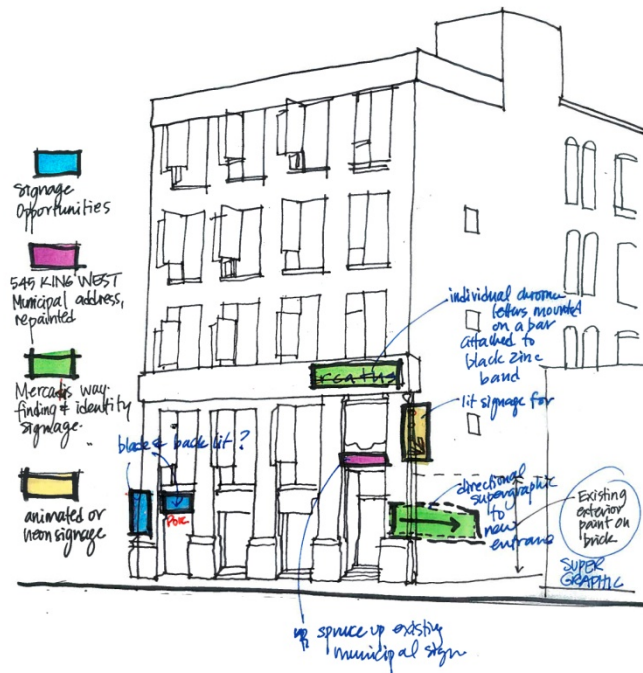 signage
Opportunities
545 KING WEST
Municipal address,
repainted
way-
finding & identity
signage.
animated or
neon signage
black & back lit?
individual chrome
letters mounted
on a bar
attached to
black zinc
band
lit signage for
directional
supergraphic
to
new
entrance
Existing
exterior
paint on
brick
SUPER
GRAPHIC
spruce up existing
municipal sign